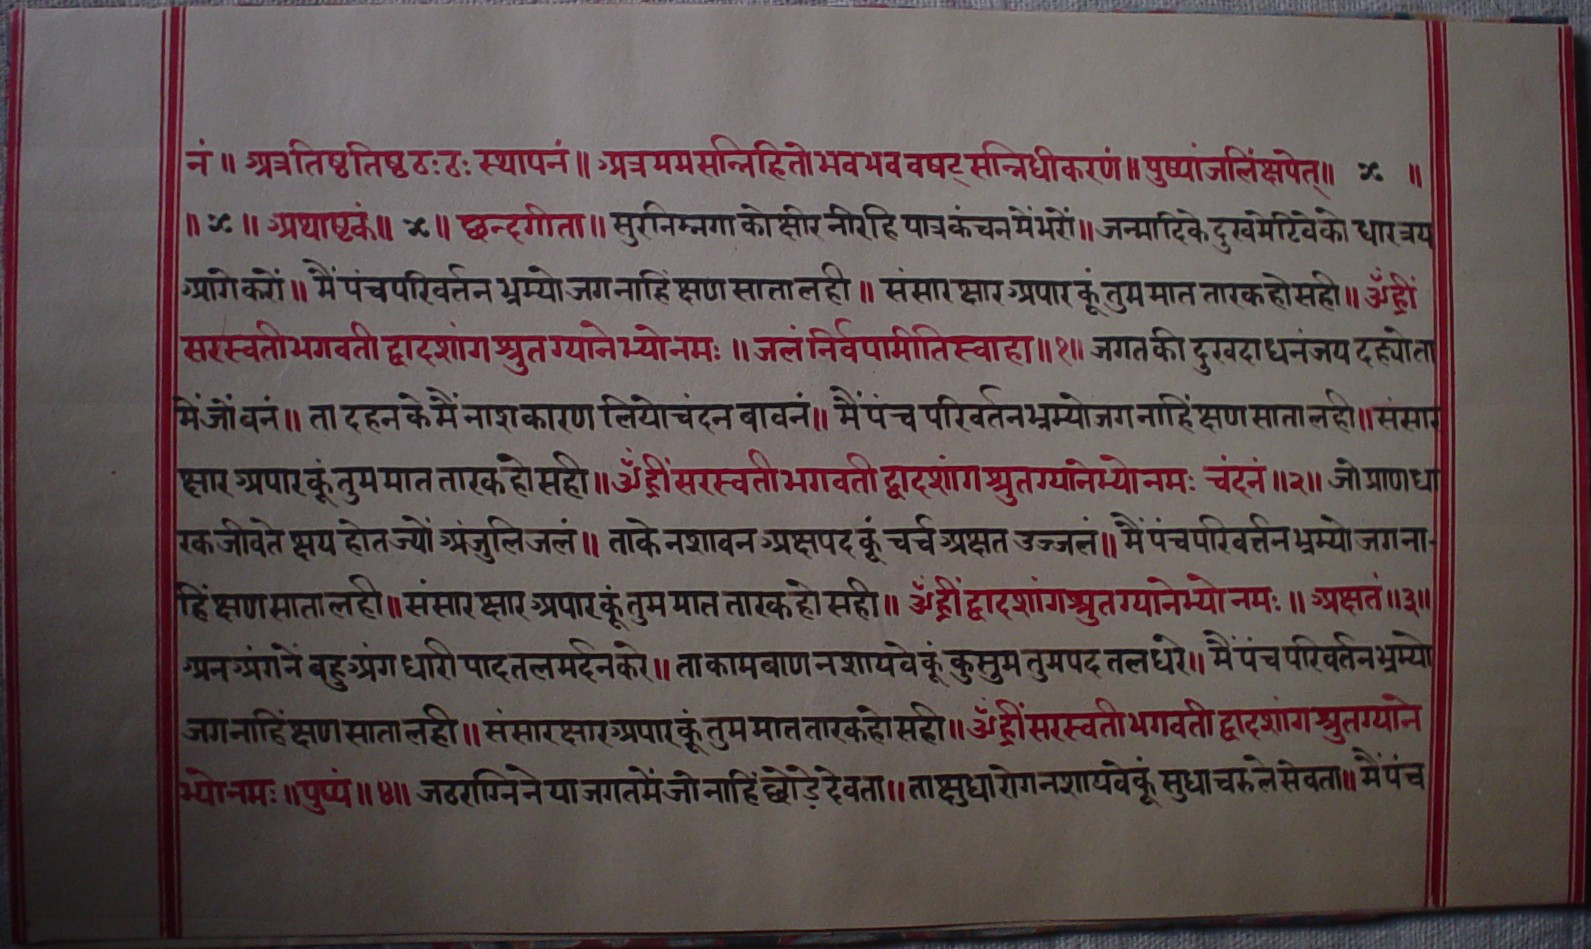 नं॥ अत्रतिष्ठतिष्ठठःठः स्थापनं॥ अत्रममसन्निहितोभवभववषट्सन्निधीकरणं॥ पुष्पांजलिंक्षपेत्॥ ॥
॥ ॥ अथाष्टकं॥ ॥ छन्दगीता॥ सुरनिम्नगा को क्षीर नीरहि पात्रकंचनमेंभरों॥ जन्मादिके दुखमेटिवेको धारत्रय
आगेकरों॥ मैं पंचपरिवर्तन भ्रम्यो जगनाहिं क्षण सातालही॥ संसार क्षार अपार कूं तुम मात तारकहोसही॥ ॐह्रीं
सरस्वतीभगवती द्वादशांग श्रुत ग्यानेभ्योनमः॥ जलं निर्वपामीतिस्वाहा॥१॥ जगतकी दुखदा धनंजय दह्योता
में जोंवनं॥ ता दहनके मैं नाशकारण लियो चंदन बावनं॥ मैं पंच परिवर्तनभ्रम्योजगनाहिं क्षणसातालही॥ संसार
क्षार अपारकूं तुम मात तारक हो सही॥ ॐह्रींसरस्वतीभगवती द्वादशांग श्रुतग्यानेभ्योनमः चंदनं॥२॥ जो प्राणधा
रक जीवते क्षय होत ज्यों अंजुलि जलं॥ ताके नशावन अक्षपद कूं चर्च अक्षत उज्जलं॥ मैं पंचपरिवर्तनभ्रम्यो जगना-
हिं क्षणसातालही॥ संसारक्षार अपारकूं तुममात तारकहो सही॥ ॐह्रीं द्वादशांगश्रुतग्यानेभ्यो नमः॥ अक्षतं॥३॥
अनअंगनें बहुअंग धारी पादतलमर्दनकरे॥ ता कामबाण नशायवेकूं कुसुम तुमपद तलधरे॥ मैं पंच परिवर्तनभ्रम्यो
जगनाहिं क्षणसातालही॥ संसारक्षारअपारकूं तुममाततारकहोसही॥ ॐह्रींसरस्वतीभगवती द्वादशांग श्रुतग्याने
भ्योनमः॥ पुष्पं॥४॥ जठराग्निने या जगतमें जो नाहिं छोड़े देवता॥ ता क्षुधा रोगनशायवेकूं सुधा चरुलेसेवता॥ मैं पंच